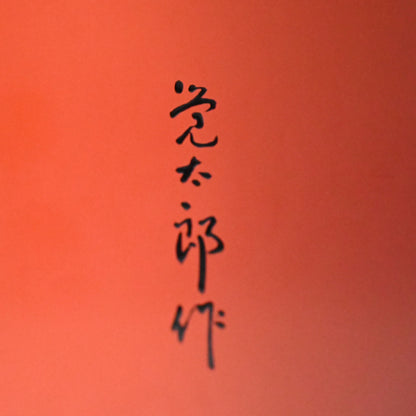 覚太郎作